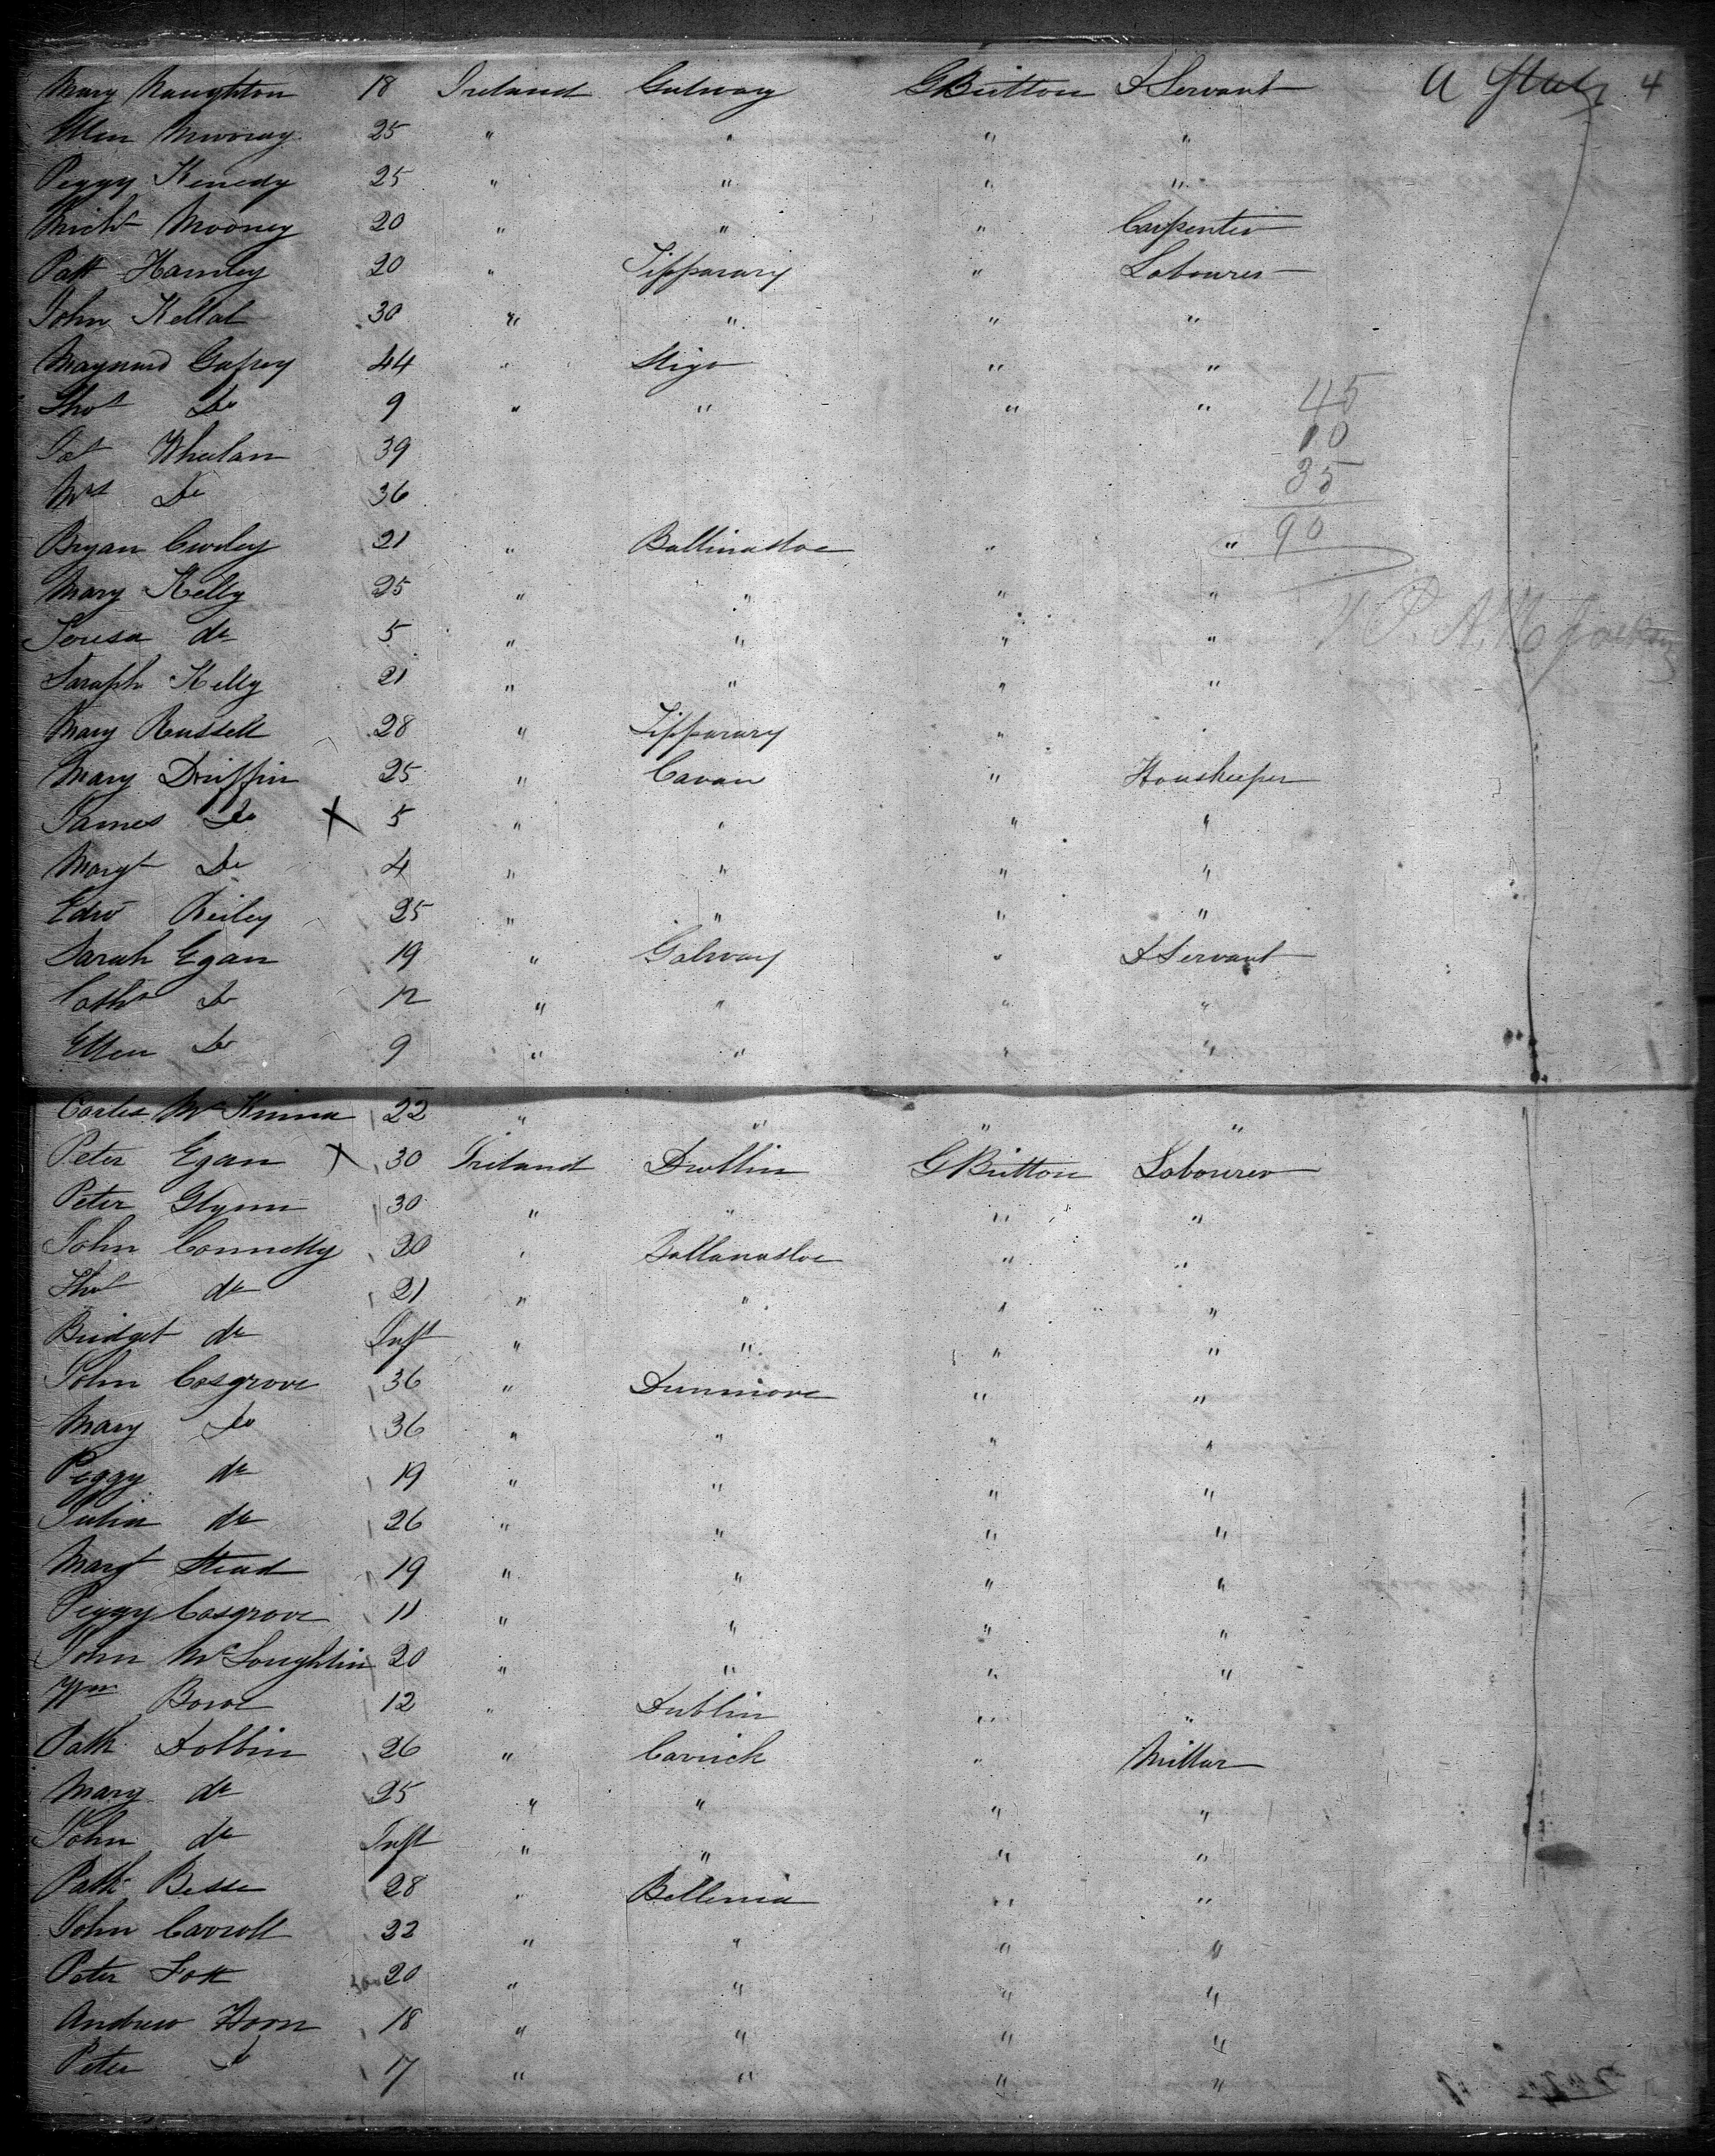 Mary Naughton 18 Ireland Galway GBritton DServant U States 4
Ellen Murray 25 " " " "
Peggy Kenedy 25 " " " "
Michl Mooney 20 " " " Carpenter
Patt Hamley 20 " Tipparary " Labourer
John Kellat 30 " " " "
Maynard Gafrey 44 " Sligo " "
Thos Do 9 " " " " 45
10
Pat Whelan 39
Mrs Do 36 35
Bryan Curley 21 " Ballinasloe " " 90
Mary Kelly 25 " " " "
Teresa do 5 " " " "
Saraph Kelly 21 " " " "
Mary Russell 28 " Tipparary "
Mary Druffin 25 " Cavan " Houskeeper
James Do X 5 " " " "
Margt Do 4 " " " "
Edwd Reiley 25 " " " "
Sarah Egan 19 " Galway " DServant
Cathn Do 12 " " " "
Ellen Do 9 " " " "
Carles McKinna 22 " " " "
Peter Egan X 30 Ireland Dublin GBritton Labourer
Peter Glynn 30 " " " "
John Connelly 20 " Ballanasloe " "
Thos do 21 " " " "
Bridget do Inft " " " "
John Cosgrove 36 " Dunmore " "
Mary Do 36 " " " "
Peggy do 19 " " " "
Julia do 26 " " " "
Margt Stead 19 " " " "
Peggy Cosgrove 11 " " " "
John McLoughlin 20 " " " "
Wm Bowe 12 " Dublin " "
Patk Dobbin 26 " Carrick " Millar
Mary do 25 " " " "
John do Inft " " " "
Patk Besse 28 " Bellenia " "
John Carroll 22 " " " "
Peter Fox 20 " " " "
Andrew Horn 18 " " " "
Peter Do 17 " " " "